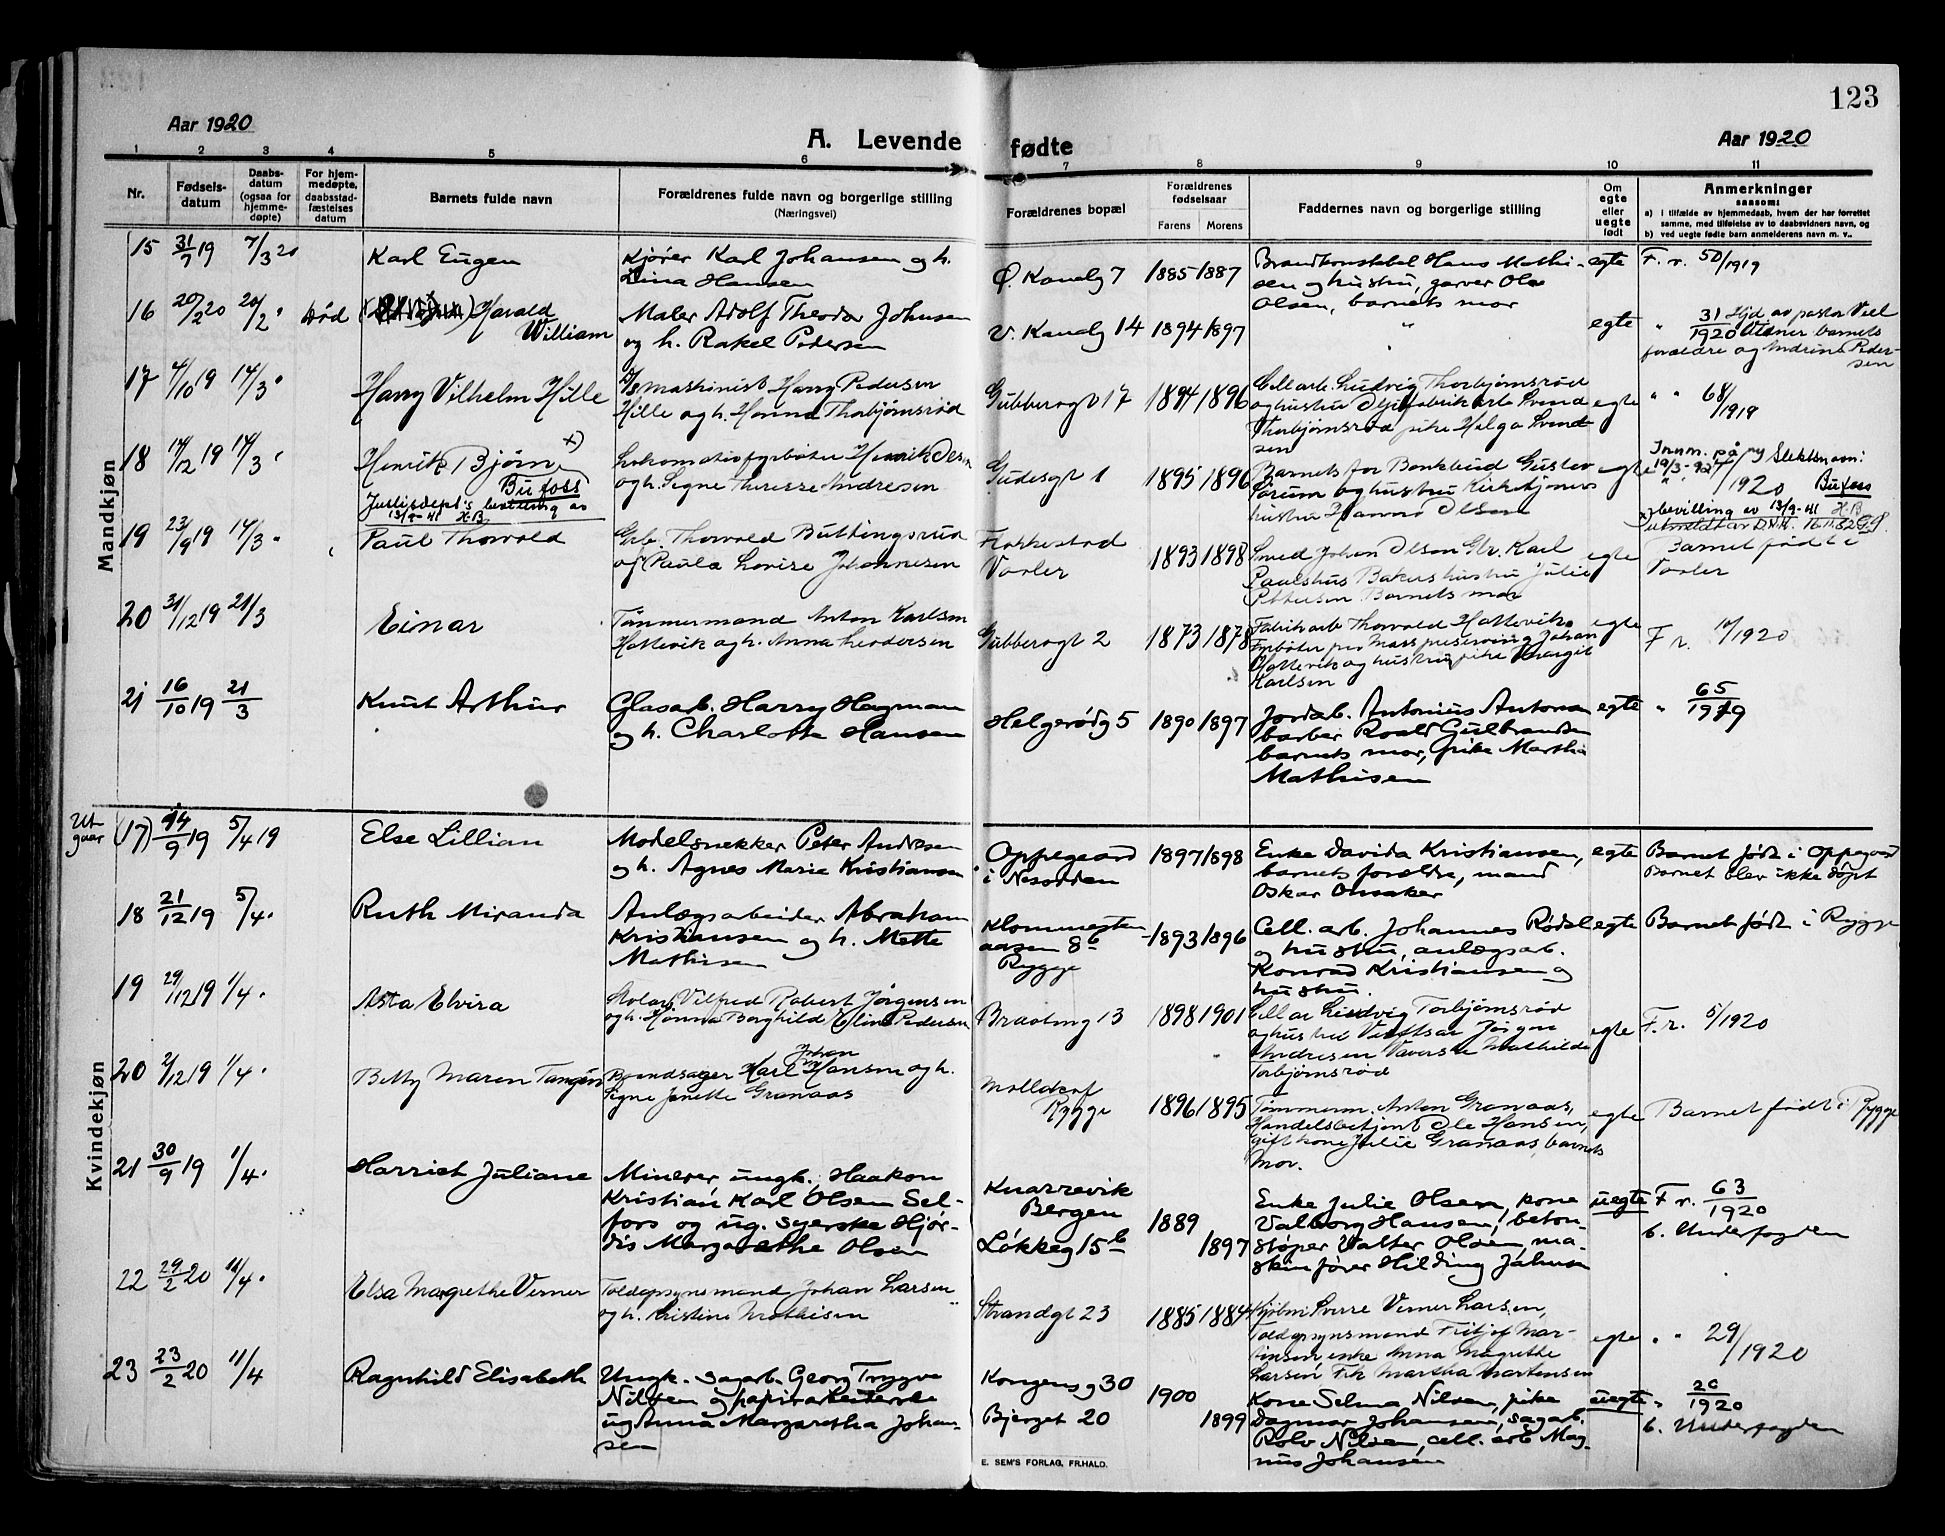 123
Aar 1920
A. Levende fødte
Aar 1920
1 2 3 4 5 6 7 8 9 10 11
Nr.
Fødsels-
datum
Daabs-
datum
(ogsaa for
hjemme-
døpte)
For hjem-
medøpte,
daabsstad-
fæstelses
datum
Barnets fulde navn
Forældrenes fulde navn og borgerlige stilling
(Næringsvei)
Forældrenes bopæl
Forældrenes
fødselsaar
Farens Morens
Faddernes navn og borgerlige stilling
Om
egte
eller
uegte
født
Anmerkninger
saasom:
a) i tilfælde av hjemmedaab, hvem der har forrettet
samme, med tilføielse av to daabsvidners navn, og
b) ved uegte fødte barn anmelderens navn m. v..
Mandkjøn
15 31/7 19 7/3 20 Karl Eugen
Kjører Karl Johansen og h.
Lina Hansen
Ø. Kanalg 7 1885 1887
Brandkonstabel Hans Mathi-
sen og hustru, garver Ole
Olsen, barnets mor
egte F. r. 50/1919
16 20/2 20 20/2 " død Harald
William
Maler Adolf Theodor Johnsen
og h. Rakel Pedersen
V. Kanalg 14 1894 1897 "
egte " 31/1920 Hjd av pastor Viel
Vidner barnets
forældre og Andrine Peder-
sen
17 4/10 19 14/3 " Harry Vilhelm Hille
maskinist Harry Pedersen
Hille og h. Hanna Thorbjørnsrød
Gubberogt 17 1894 1896
Cell arb. Ludvig Thorbjørnsrød
og hustru fabrikarb Svend
Thorbjørnsrød pike Helga Svend-
sen
egte " " 68/1919
18 17/12 19 14/3 " Henrik Bjørn x)
Bufoss
Justisdept's bevilling av
13/9-41 H.B.
Lokomotivfyrbøter Henrik Olsen
og h. Signe Therese Andresen
Gudesgt 1 1895 1896
Barnets far Bankbud Gustav
Sørum og hustru Kirketjener
hustru Olsen
egte Innm. på ny Slektsnavn:
19/3-927 /1920 Bufoss
x) bevilling av 13/9-41 H.B.
19 23/9 19 14/3 " Paul Thorvald
Grb. Thorvald Buttingsrud
og Paula Lovise Johannesen
Flakkestad
Vaaler
1893 1898
Smed Johan Olsen Gbr. Karl
Paulshus Bakers hustru Julie
Pettersen Barnets mor
egte Barnet født i
Vaaler
20 31/12 19 21/3 Einar
Tømmermand Anton Karlsen
Hattevik og h. Anna Theodorsen
Gubberogt 2 1873 1878
Fabrikarb Thorvald Hattevik
Fyrbøter Johan
Hattevik og hustru pike Margit
Karlsen
egte F r. /1920
21 16/10 19 21/3 Knut Arthur
Glasarb. Harry Heyman
og h. Charlotte Hansen
Helgerødg 5 1890 1897
Jordarb. Antonius Antonsen
barber Roald Gulbrandsen
barnets mor, pike Martha
Mathisen
egte " 65/1919
Kvindekjøn
Ut-
gaar
(17) 14/9 19 5/4 19 Else Lillian
Modelsnekker Peter Andresen
og h. Agnes Marie Kristiansen
Oppegaard
i Nesodden
1897 1898
Enke Davida Kristiansen,
barnets forældre, mand
Oskar Onsaker
egte Barnet født i Oppegaard
Barnet blev ikke døpt
18 21/12 19 5/4 " Ruth Miranda
Anlægsarbeider Abraham
Kristiansen og h. Mette
Mathisen
Klommesten
aasen 8b
Rygge
1893 1896
Cell. arb. Johannes Rødsl
og hustru, anlægsarb.
Konrad Kristiansen og
hustru.
egte Barnet født i Rygge
19 29/12 19 1/4 " Asta Elvira
Vilfred Robert Jørgensen
og h. Borghild Eline Pedersen
Braatengt 13 1898 1901
Cell ar Ludvig Torbjørnsrød
og hustru Jørgen
Andresen Mathilde
Torbjørnsrød
egte F. r. 5/1920
20 2/12 19 1/4 " Betty Maren Tangen
Brandsager Karl Johan Hansen og h.
Signe Janette Granaas
Molldorf
Rygge
1896 1895
Tømmerm. Anton Granaas,
Handelsbetjent Ole Hansen,
gift kone Julie Granaas, barnets
mor.
egte Barnet født i Rygge
21 30/9 19 1/4 " Harriet Juliane
Minerer ungk. Haakon
Kristian Karl Olsen Sel-
fors og ug. syerske Hjør-
dis Margarethe Olsen
Knarrevik
Bergen
Løkkeg 15b
1889
1897
Enke Julie Olsen, kone
Valborg Hansen, beton-
støper Valter Olsen ma-
skinfører Hilding Johnsen
uegte F r. 63/1920
b. Underfogden
22 29/2 20 11/4 " Elsa Margrethe Verner
Toldopsynsmand Johan Larsen
og h. Kristine Mathisen
Strandgt 23 1885 1884
Sverre Verner Larsen,
Toldopsynsmand Fritjof Mar-
tinsen, enke Anna Magrethe
Larsen Frk Martha Martensen
egte " " 29/1920
23 23/2 20 11/4 Ragnhild Elisabeth
Ungk. sagarb. Georg Trygve
Nilsen og papirarbeiderske
ug Anna Margaretha Johan-
sen
Kongensg 30
Bjerget 20
1900
1899
Kone Selma Nilsen, pike
Dagmar Johansen, sagarb.
Rolv Nilsen, cell. arb Mag-
nus Johansen
uegte " 20/1920
b. Underfogden
E. SEM'S FORLAG, FR.HALD.